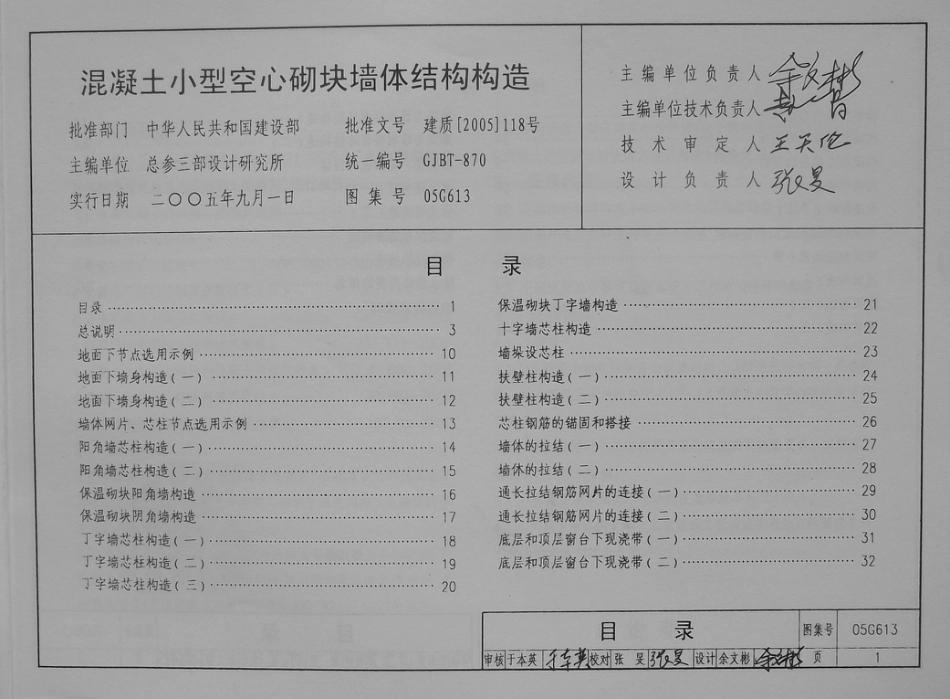 混凝土小型空心砌块墙体结构构造
批准部门 中华人民共和国建设部 批准文号 建质[2005]118号
主编单位 总参三部设计研究所 统一编号 GJBT-870
实行日期 二〇〇五年九月一日 图集号 05G613
主编单位负责人 余文彬
主编单位技术负责人
技术审定人 王天伦
设计负责人
目 录
目录 1
总说明 3
地面下节点选用示例 10
地面下墙身构造(一) 11
地面下墙身构造(二) 12
墙体网片、芯柱节点选用示例 13
阳角墙芯柱构造(一) 14
阳角墙芯柱构造(二) 15
保温砌块阳角墙构造 16
保温砌块阴角墙构造 17
丁字墙芯柱构造(一) 18
丁字墙芯柱构造(二) 19
丁字墙芯柱构造(三) 20
保温砌块丁字墙构造 21
十字墙芯柱构造 22
墙垛设芯柱 23
扶壁柱构造(一) 24
扶壁柱构造(二) 25
芯柱钢筋的锚固和搭接 26
墙体的拉结(一) 27
墙体的拉结(二) 28
通长拉结钢筋网片的连接(一) 29
通长拉结钢筋网片的连接(二) 30
底层和顶层窗台下现浇带(一) 31
底层和顶层窗台下现浇带(二) 32
目 录 图集号 05G613
审核 于本英 于本英 校对 张 旻 张旻 设计 余文彬 余文彬 页 1